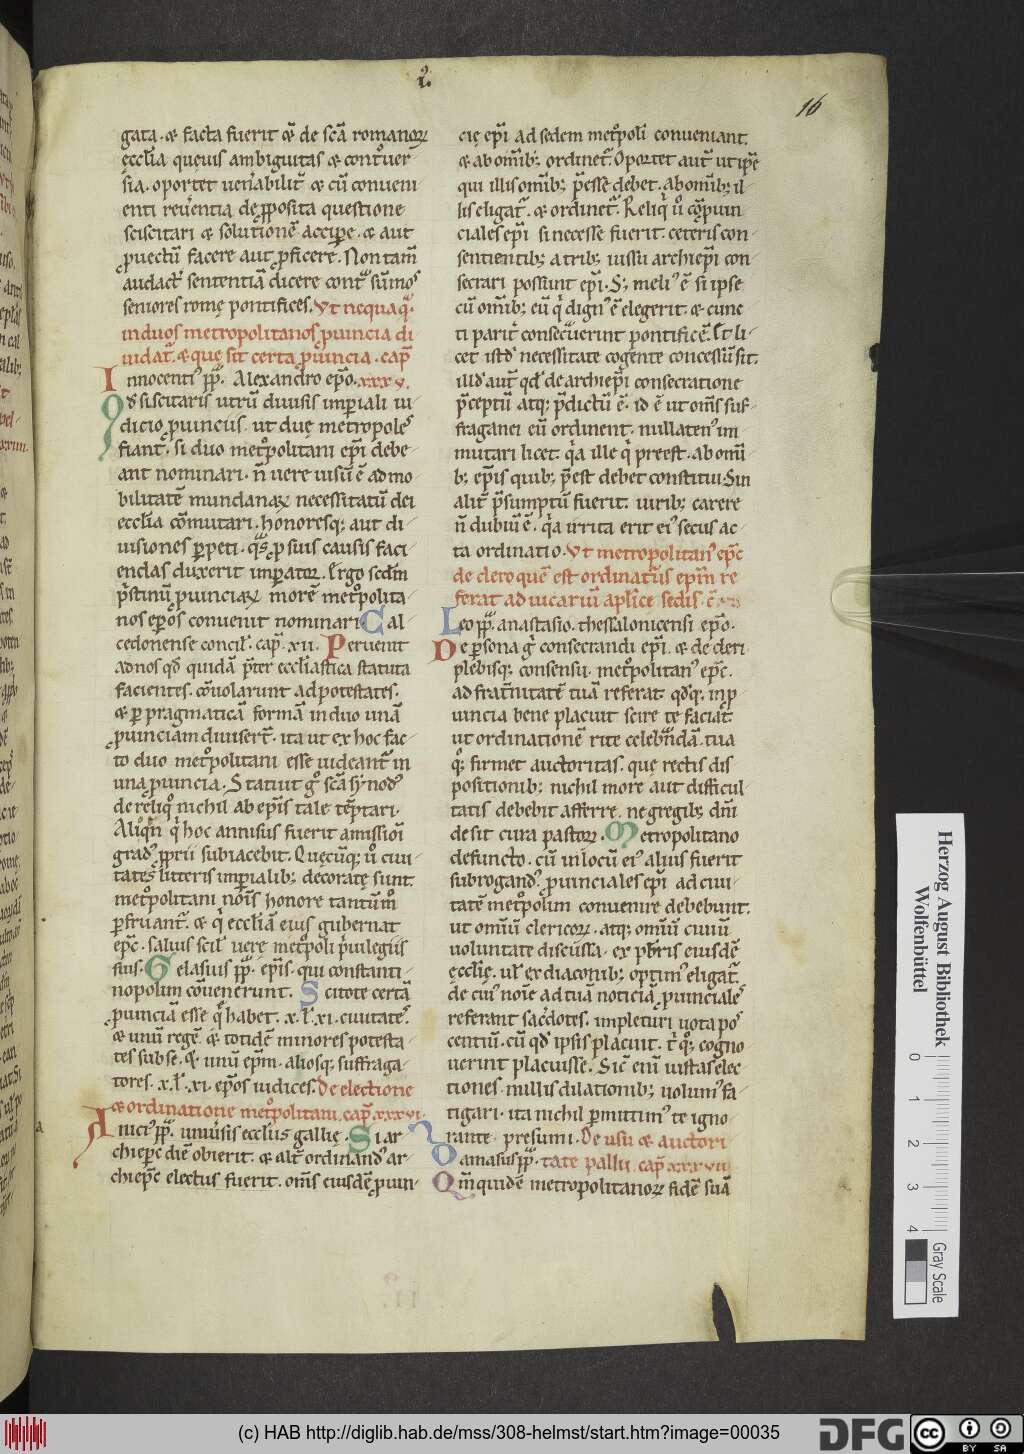 i.
16
gata. & facta fuerit q̄ de scā romanoꝝ
ęccl̄ia quęuis ambiguitas & cont͛uer-
sia. oportet uen͛abilit͛ & cū conueni-
enti reu͛entia de ꝓposita questione
sciscitari & solutionē accipe. & aut
ꝓuectū facere aut ꝓficere. Non tam̄
audact͛ sententiā dicere contͣ sūmos
seniores rome pontifices. Vt nequaq̄ᵃ
in duos metropolitanos ꝓuincia di
uidat͛. & que sit certa ꝓuincia. cap̄
Innocentiꝰ pp. Alexandro ep̄o. xxxv.
Qd̄ sciscitaris utrū diuisis imꝑiali iu-
dicio ꝓuinciis. ut due metropoles
fiant. si duo met͛politani ep̄i debe-
ant nominari. n̄ uere uisū ē ad mo
bilitatē mundanaꝝ necessitatū dei
eccl̄ia cōmutari. honoresq; aut di-
uisiones ꝑpeti. qͣs ꝓ suis causis faci-
endas duxerit imꝑator. Ergo scd̄m
pͥstinū ꝓuinciaꝝ morē met͛polita-
nos ep̄os conuenit nominari. Cal-
cedonense concil͛. cap̄. xii. Peruenit
ad nos qd̄ quidā pͣter eccl̄iastica statuta
facientes. cōuolarunt ad potestates.
& ꝑ pragmaticā formā in duo unā
ꝓuinciam diuiserūt. ita ut ex hoc fac-
to duo met͛politani esse uideant͛ in
una ꝓuincia. Statuit gͦ scā synodꝰ
de reliqͦ nichil ab ep̄is tale tēptari.
Alioqͥn qͥ hoc annisus fuerit amissiōi
gradꝰ ꝓprii subiacebit. Quęcūq; u͛o ciui-
tates litteris imꝑialib; decoratę sunt.
met͛politani nōis honore tantūmͦ
ꝑfruant͛. & qͥ eccl̄iā eius gubernat
ep̄c. saluis scil͛ uere met͛poli pͥuilegiis
suis. Gelasius pp. ep̄is. qui constanti-
nopolim cōuenerunt. Scitote certā
ꝓuinciā esse qͥ habet. x. l͛. xi. ciuitates.
& unū regē. & totidē minores potesta-
tes sub se. & unū ep̄m. aliosq; suffraga-
tores. x. l͛. xi. ep̄os iudices. De electione
& ordinatione met͛politani. cap̄. xxxvi.
Aniciꝰ pp. uniu͛sis eccl̄iis gallię. Si ar
chiep̄c diē obierit. & alt͛ ordinandꝰ ar-
chiep̄c electus fuerit. om̄s eiusdē ꝓuin-
cię ep̄i ad sedem met͛poli conueniant.
& ab om̄ib; ordinet͛. Oportet aut͛ ut ip̄e
qui illis om̄ib; p̄esse debet. ab om̄ib; il-
lis eligat͛. & ordinet͛. Reliqͥ u͛o cōꝓuin
ciales ep̄i si necesse fuerit. ceteris con-
sentientib; a trib; iussu archiep̄i con-
secrari possunt ep̄i. S; meliꝰ ē si ipse
cū om̄ib; eū qͥ dignꝰ ē elegerit. & cunc-
ti parit͛ consecͣuerint pontificē. Et li-
cet istđ necessitate cogente concessū sit.
illđ aut͛ qđ de archiep̄i consecratione
p̄ceptū atq; p̄dictū ē. id ē ut om̄s suf-
fraganei eū ordinent. nullatenꝰ im
mutari licet. qͥa ille qͥ preest. ab om̄i
b; ep̄is quib; p̄est debet constitui. Sin
alit͛ p̄sumptū fuerit. uirib; carere
n̄ dubiū ē. qͥa irrita erit eiꝰ secus ac-
ta ordinatio. Vt metropolitanꝰ ep̄c
de clero quē est ordinaturus ep̄m re
ferat ad uicariū apl̄ice sedis. c.
Leo pp. anastasio. thessalonicensi ep̄o.
De ꝑsona gͦ consecrandi ep̄i. & de cleri
plebisq; consensu. met͛politanꝰ ep̄c.
ad frat͛nitatē tuā referat. qđq; in ꝓ
uincia bene placuit scire te faciat.
ut ordinationē rite celebͣndā. tua
qͦ; firmet auctoritas. que rectis dis
positionib; nichil more aut difficul
tatis debebit afferre. ne gregib; dn̄i
desit cura pastoꝝ. Metropolitano
defuncto. cū in locū eiꝰ alius fuerit
subrogandꝰ. ꝓuinciales ep̄i ad ciui-
tatē met͛polim conuenire debebunt.
ut om̄iū clericoꝝ. atq; om̄iū ciuiū
uoluntate discussa. ex pb͛ris eiusdē
ęcclię. ul͛ ex diaconib; optimꝰ eligat͛.
de cuiꝰ noīe ad tuā noticiā ꝓuinciales
referant sac͛dotes. impleturi uota pos
centiū. cū qđ ipsis placuit. t͛ qͦ; cogno
uerint placuisse. Sic̄ enī iustas elec
tiones nullis dilationib; uolumꝰ fa-
tigari. ita nichil ꝑmittimꝰ te igno-
rante presumi. De usu & auctori
Damasus pp. tate pallii. cap̄. xxxvii
Qm̄ quidē metropolitanoꝝ fidē suā
Herzog August Bibliothek
Wolfenbüttel
0 1 2 3 4
Gray Scale
(c) HAB http://diglib.hab.de/mss/308-helmst/start.htm?image=00035
DFG
cc BY SA